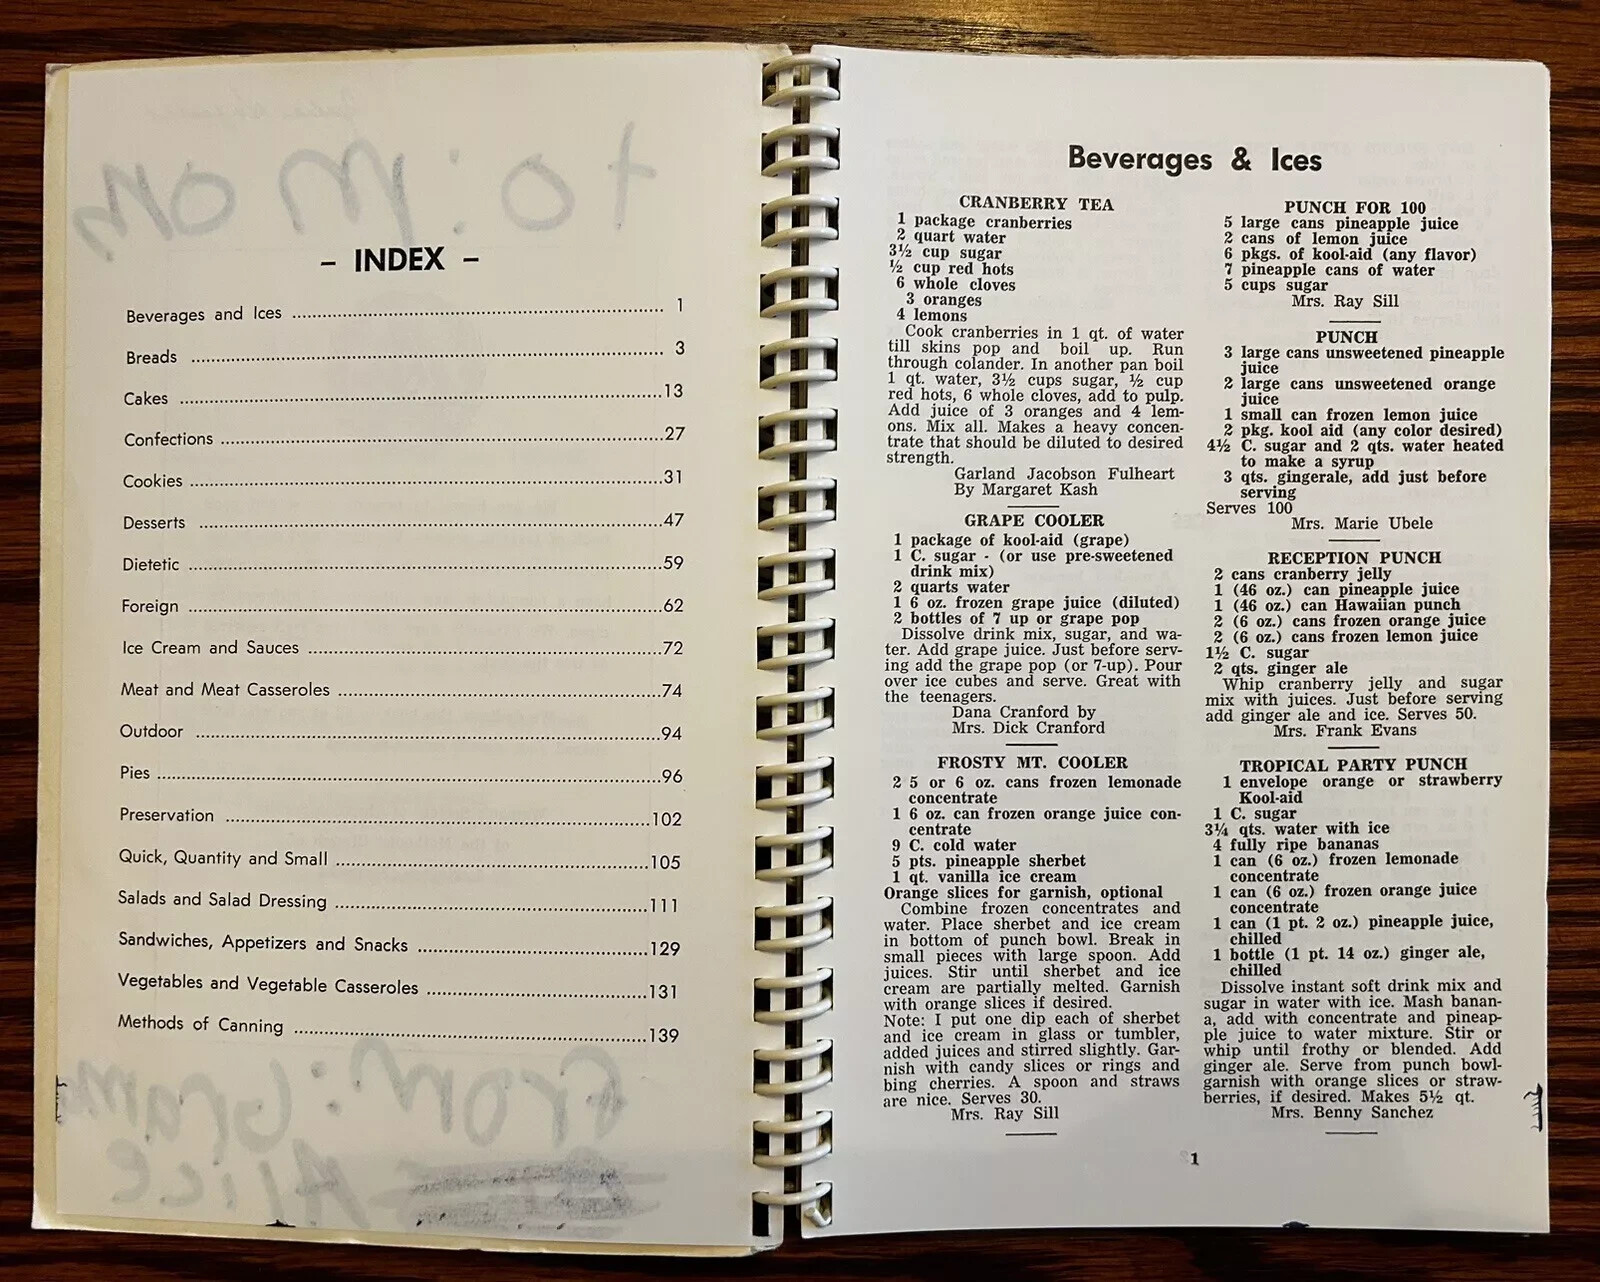 to: Mom
- INDEX -
Beverages and Ices 1
Breads 3
Cakes 13
Confections 27
Cookies 31
Desserts 47
Dietetic 59
Foreign 62
Ice Cream and Sauces 72
Meat and Meat Casseroles 74
Outdoor 94
Pies 96
Preservation 102
Quick, Quantity and Small 105
Salads and Salad Dressing 111
Sandwiches, Appetizers and Snacks 129
Vegetables and Vegetable Casseroles 131
Methods of Canning 139
From: Gram
Alice
Beverages & Ices
CRANBERRY TEA
1 package cranberries
2 quart water
3½ cup sugar
½ cup red hots
6 whole cloves
3 oranges
4 lemons
Cook cranberries in 1 qt. of water
till skins pop and boil up. Run
through colander. In another pan boil
1 qt. water, 3½ cups sugar, ½ cup
red hots, 6 whole cloves, add to pulp.
Add juice of 3 oranges and 4 lem-
ons. Mix all. Makes a heavy concen-
trate that should be diluted to desired
strength.
Garland Jacobson Fulheart
By Margaret Kash
GRAPE COOLER
1 package of kool-aid (grape)
1 C. sugar - (or use pre-sweetened
drink mix)
2 quarts water
1 6 oz. frozen grape juice (diluted)
2 bottles of 7 up or grape pop
Dissolve drink mix, sugar, and wa-
ter. Add grape juice. Just before serv-
ing add the grape pop (or 7-up). Pour
over ice cubes and serve. Great with
the teenagers.
Dana Cranford by
Mrs. Dick Cranford
FROSTY MT. COOLER
2 5 or 6 oz. cans frozen lemonade
concentrate
1 6 oz. can frozen orange juice con-
centrate
9 C. cold water
5 pts. pineapple sherbet
1 qt. vanilla ice cream
Orange slices for garnish, optional
Combine frozen concentrates and
water. Place sherbet and ice cream
in bottom of punch bowl. Break in
small pieces with large spoon. Add
juices. Stir until sherbet and ice
cream are partially melted. Garnish
with orange slices if desired.
Note: I put one dip each of sherbet
and ice cream in glass or tumbler,
added juices and stirred slightly. Gar-
nish with candy slices or rings and
bing cherries. A spoon and straws
are nice. Serves 30.
Mrs. Ray Sill
PUNCH FOR 100
5 large cans pineapple juice
2 cans of lemon juice
6 pkgs. of kool-aid (any flavor)
7 pineapple cans of water
5 cups sugar
Mrs. Ray Sill
PUNCH
3 large cans unsweetened pineapple
juice
2 large cans unsweetened orange
juice
1 small can frozen lemon juice
2 pkg. kool aid (any color desired)
4½ C. sugar and 2 qts. water heated
to make a syrup
3 qts. gingerale, add just before
serving
Serves 100
Mrs. Marie Ubele
RECEPTION PUNCH
2 cans cranberry jelly
1 (46 oz.) can pineapple juice
1 (46 oz.) can Hawaiian punch
2 (6 oz.) cans frozen orange juice
2 (6 oz.) cans frozen lemon juice
1½ C. sugar
2 qts. ginger ale
Whip cranberry jelly and sugar
mix with juices. Just before serving
add ginger ale and ice. Serves 50.
Mrs. Frank Evans
TROPICAL PARTY PUNCH
1 envelope orange or strawberry
Kool-aid
1 C. sugar
3¼ qts. water with ice
4 fully ripe bananas
1 can (6 oz.) frozen lemonade
concentrate
1 can (6 oz.) frozen orange juice
concentrate
1 can (1 pt. 2 oz.) pineapple juice,
chilled
1 bottle (1 pt. 14 oz.) ginger ale,
chilled
Dissolve instant soft drink mix and
sugar in water with ice. Mash banan-
a, add with concentrate and pineap-
ple juice to water mixture. Stir or
whip until frothy or blended. Add
ginger ale. Serve from punch bowl-
garnish with orange slices or straw-
berries, if desired. Makes 5½ qt.
Mrs. Benny Sanchez
1